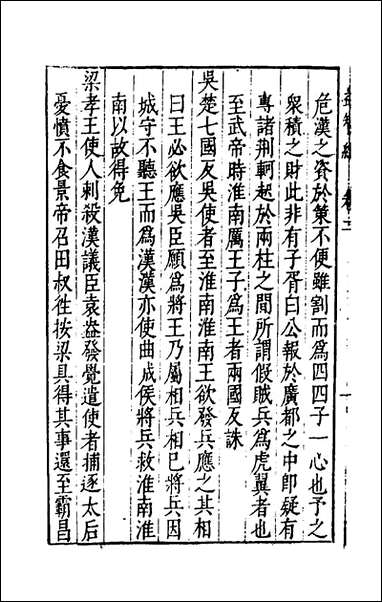 危漢之資於策不便雖割而為四四子一心也予之
衆積之財此非有子胥白公報於廣都之中即疑有
專諸荆軻起於兩柱之間所謂假賊兵為虎翼者也
至武帝時淮南厲王子為王者兩國反誅
吳楚七國反吳使者至淮南淮南王欲發兵應之其相
曰王必欲應吳臣願為將王乃屬相兵相已將兵因
城守不聽王而為漢漢亦使曲成侯將兵救淮南淮
南以故得免
梁孝王使人刺殺漢議臣袁盎發覺遣使者捕逐太后
憂憤不食景帝召田叔徃按梁具得其事還至霸昌